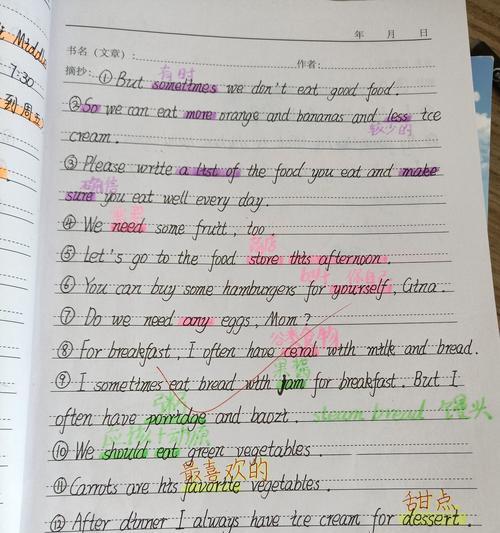 t Middle
7:30
到周五
年 月 日
书名（文章）： 作者：
有时
摘抄：①But sometimes we don't eat good food.
②So we can eat more orange and bananas and less ice
较少的
cream.
③Please write a list of the food you eat and make
确信
sure you eat well every day.
需要
④We need some fruit, too.
商店
⑤Let's go to the food store this afternoon.
buy 你自己
⑥You can buy some hamburgers for yourself, Gina.
⑦Do we need any eggs, Mom?
谷类食物
⑧For breakfast, I often have ceral with milk and bread.
果酱
⑨I sometimes eat bread with jam for breakfast. But I
often have porridge and baozi. steam bread 馒头
⑩We should eat green vegetables.
最喜欢的
⑪Carrots are his favorite vegetables.
甜点
⑫After dinner I always have ice cream for dessert.